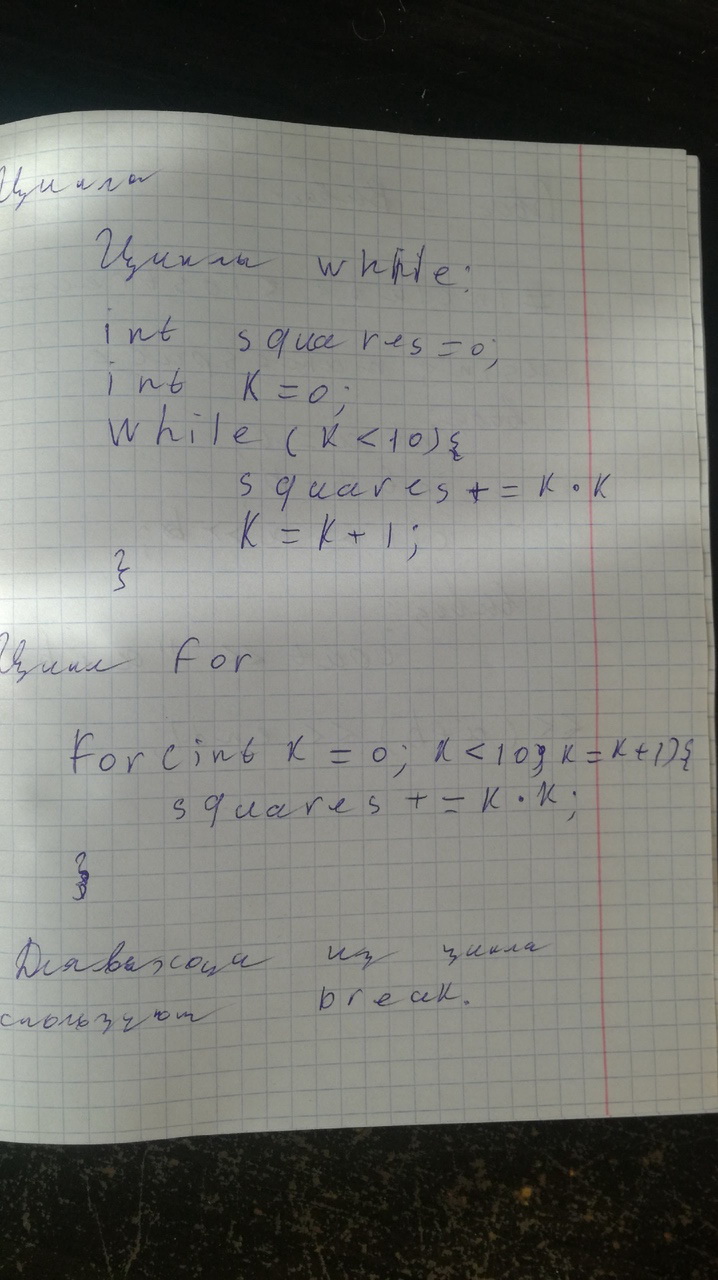 Цикла
Циклы while:
int squares = 0;
int K = 0;
while (K < 10) {
squares += K • K
K = K + 1;
}
Цикл for
for (int K = 0; K < 10; K = K + 1) {
squares += K • K;
}
Для выхода из цикла
спользуют break.